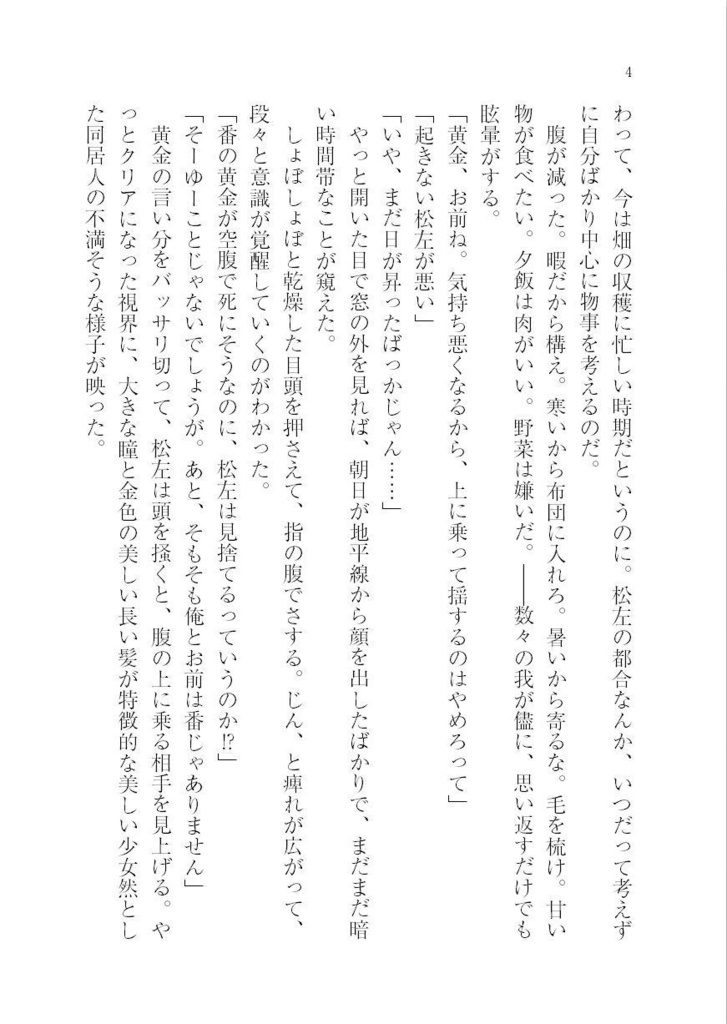 4
わって、今は畑の収穫に忙しい時期だというのに。松左の都合なんか、いつだって考えず
に自分ばかり中心に物事を考えるのだ。
　腹が減った。暇だから構え。寒いから布団に入れろ。暑いから寄るな。毛を梳け。甘い
物が食べたい。夕飯は肉がいい。野菜は嫌いだ。――数々の我が儘に、思い返すだけでも
眩暈がする。
「黄金、お前ね。気持ち悪くなるから、上に乗って揺するのはやめろって」
「起きない松左が悪い」
「いや、まだ日が昇ったばっかじゃん……」
　やっと開いた目で窓の外を見れば、朝日が地平線から顔を出したばかりで、まだまだ暗
い時間帯なことが窺えた。
　しょぼしょぼと乾燥した目頭を押さえて、指の腹でさする。じん、と痺れが広がって、
段々と意識が覚醒していくのがわかった。
「番の黄金が空腹で死にそうなのに、松左は見捨てるっていうのか!?」
「そーゆーことじゃないでしょうが。あと、そもそも俺とお前は番じゃありません」
　黄金の言い分をバッサリ切って、松左は頭を掻くと、腹の上に乗る相手を見上げる。や
っとクリアになった視界に、大きな瞳と金色の美しい長い髪が特徴的な美しい少女然とし
た同居人の不満そうな様子が映った。